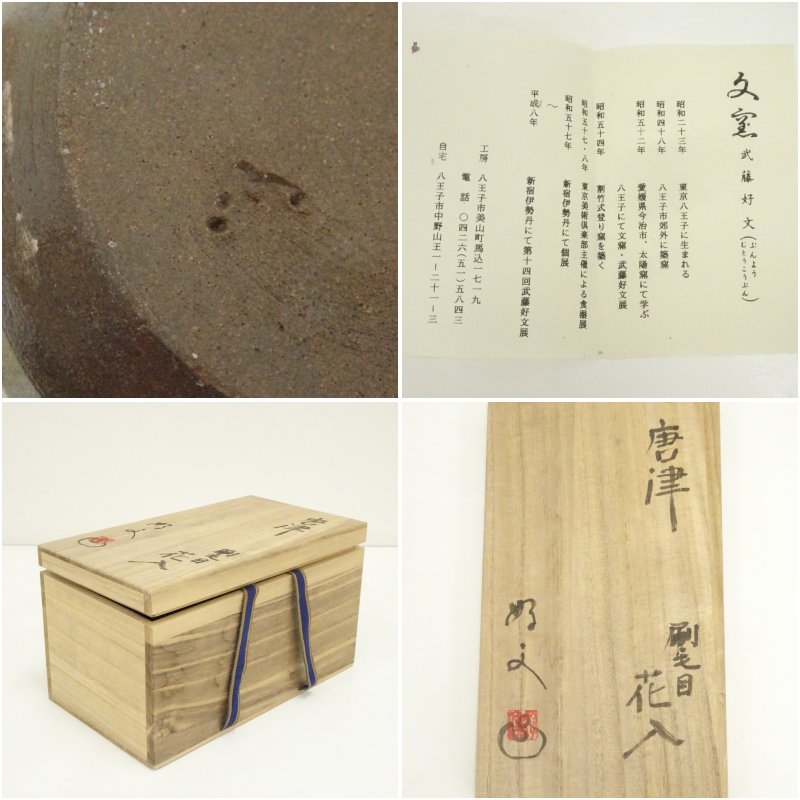 文窯 武藤好文(ぶんよう むとうこうぶん)
昭和二十三年 東京八王子に生まれる
昭和四十八年 八王子市郊外に築窯
昭和五十二年 愛媛県今治市、太陽窯にて学ぶ
八王子にて文窯・武藤好文展
昭和五十四年 割竹式登り窯を築く
昭和五十七・八年 東京美術倶楽部主催による食器展
昭和五十七年 新宿伊勢丹にて個展
〜
平成八年 新宿伊勢丹にて第十四回武藤好文展
工房 八王子市美山町馬込一七一九
電話 〇四二六(五一)五八四三
自宅 八王子市中野山王一ー二十一ー三
唐津
刷毛目
花入
好文
唐津
刷毛目
花入
好文